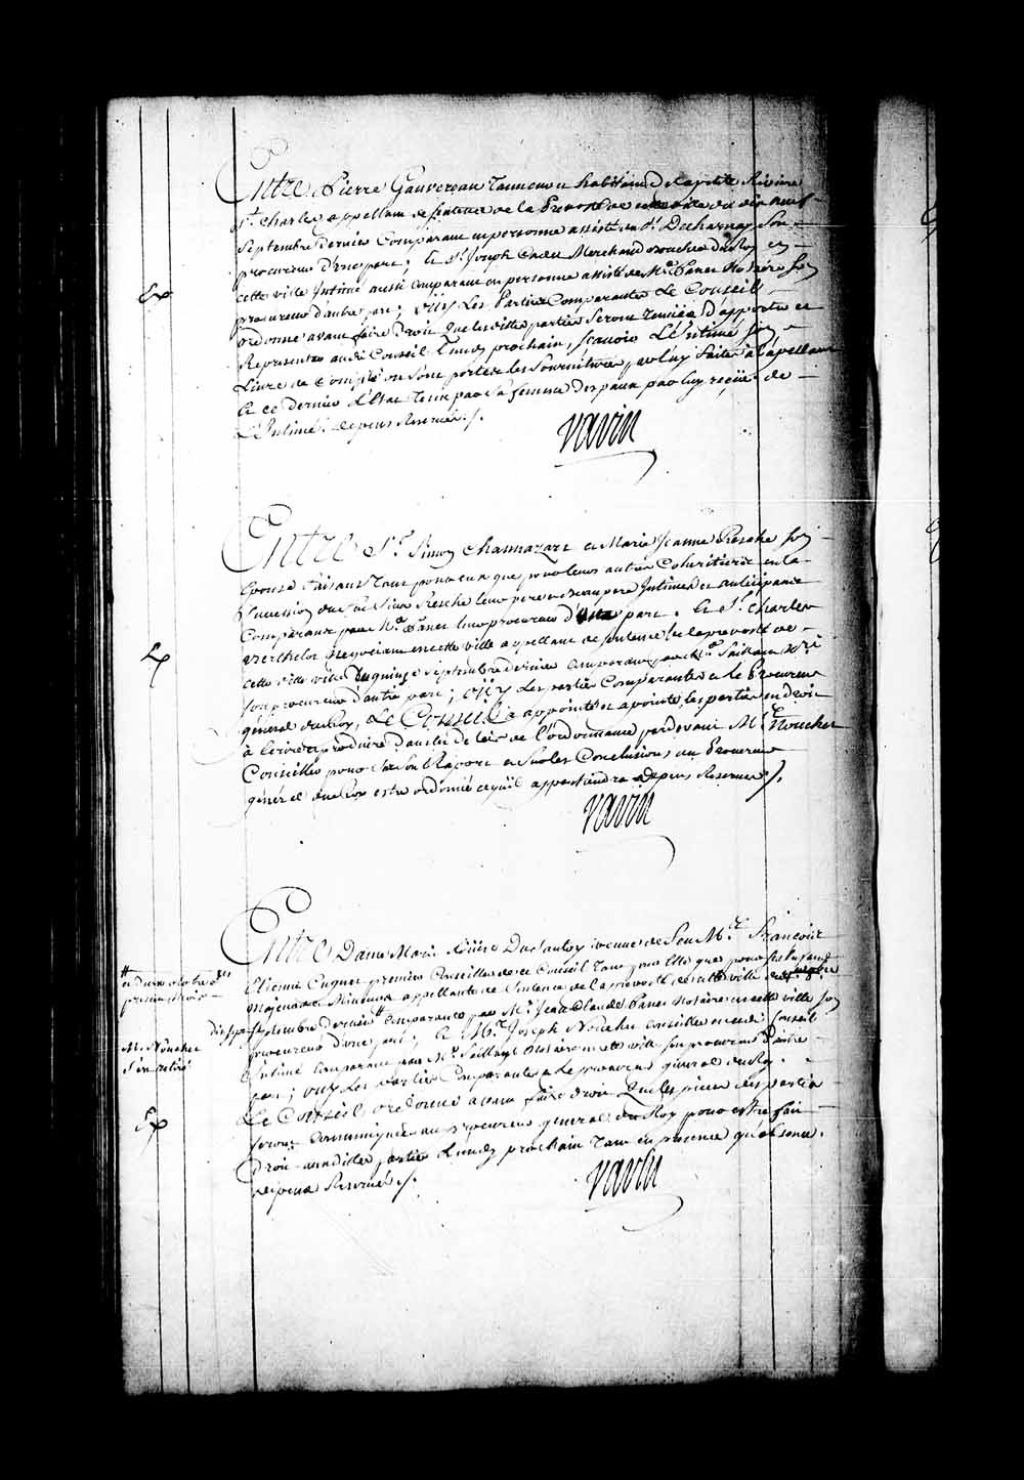 Entre Pierre Gauvereau Tanneur et habitant de la petite Riviere
St. Charles appellant de sentence de la Prevosté de cette ville du dix neuf
Septembre dernier Comparant en personne assisté du Sr. Ducharnay Son
procureur d'une part; Et Sr. Joseph Cadet Marchand Boucher du Roy en
cette ville Intimé aussi Comparant en personne assisté de Me. Panet Notaire Son
procureur d'autre part; Oüy Les Parties Comparantes Le Conseil
ordonne avant faire Droit que lesdittes parties Seront tenües d'apporter et
Representer audit Conseil Lundy prochain, Scavoir L'Intimé Son
Livre de Compte ou Sont portées les fournitures par luy faites à l'apellant
Et ce dernier L'Etat tenu par Sa femme des peaux par luy reçües de
L'Intimé. depens Reservés ./.
Vavin
Entre Sr. Simon Chamazart et Marie Jeanne Resche Son
Epouse faisant tant pour eux que pour leurs autres Coheritiers en la
Succession du feu Sieur Resche leur pere et beaupere Intimés et anticipants
Comparant par Me. Panet leur procureur d'une part. Et Sr. Charles
Berthelot Negociant en cette ville appellant de sentence de la prevosté de
cette ditte ville du quinze Septembre dernier Comparant par Me. Saillant Nre.
Son procureur d'autre part; Oüy Les parties Comparantes et le Procureur
général du Roy, Le Conseil a appointé et apointe les parties en droit
à Ecrire et produire dans les delais de l'ordonnance pardevant Me. Nouchet
Conseiller pour Sur Son Raport et Sur les Conclusions du Procureur
général du Roy estre ordonné ce qu'il appartiendra depens Reservés ./.
Vavin
Entre Dame Marie Dusautoy veuve de feu Me. François
Etienne Cugnet premier Conseiller de ce Conseil tant pour Elle que pour ses Enfants
Majeurs et Mineurs appellante de Sentence de la prevosté de cette ville
Septembre dernier # Comparante par Me. Jean Claude Panet Notaire en cette ville Son
procureur d'une part; Et Me. Joseph Nouchet Conseiller audit Conseil
Intimé Comparant par Me. Saillant Notaire en cette ville Son procureur d'autre
part; Oüy Les parties Comparantes et Le procureur général du Roy.
Le Conseil ordonne avant faire droit que les pieces des parties
Seront Communiquées au procureur general du Roy pour estre fait
Droit auxdittes parties Lundy prochain tant en presence qu'absence.
depens Reservés ./.
Vavin
# et du
present mois
M. Nouchet
s'en retiré
Ex
Ex
Ex